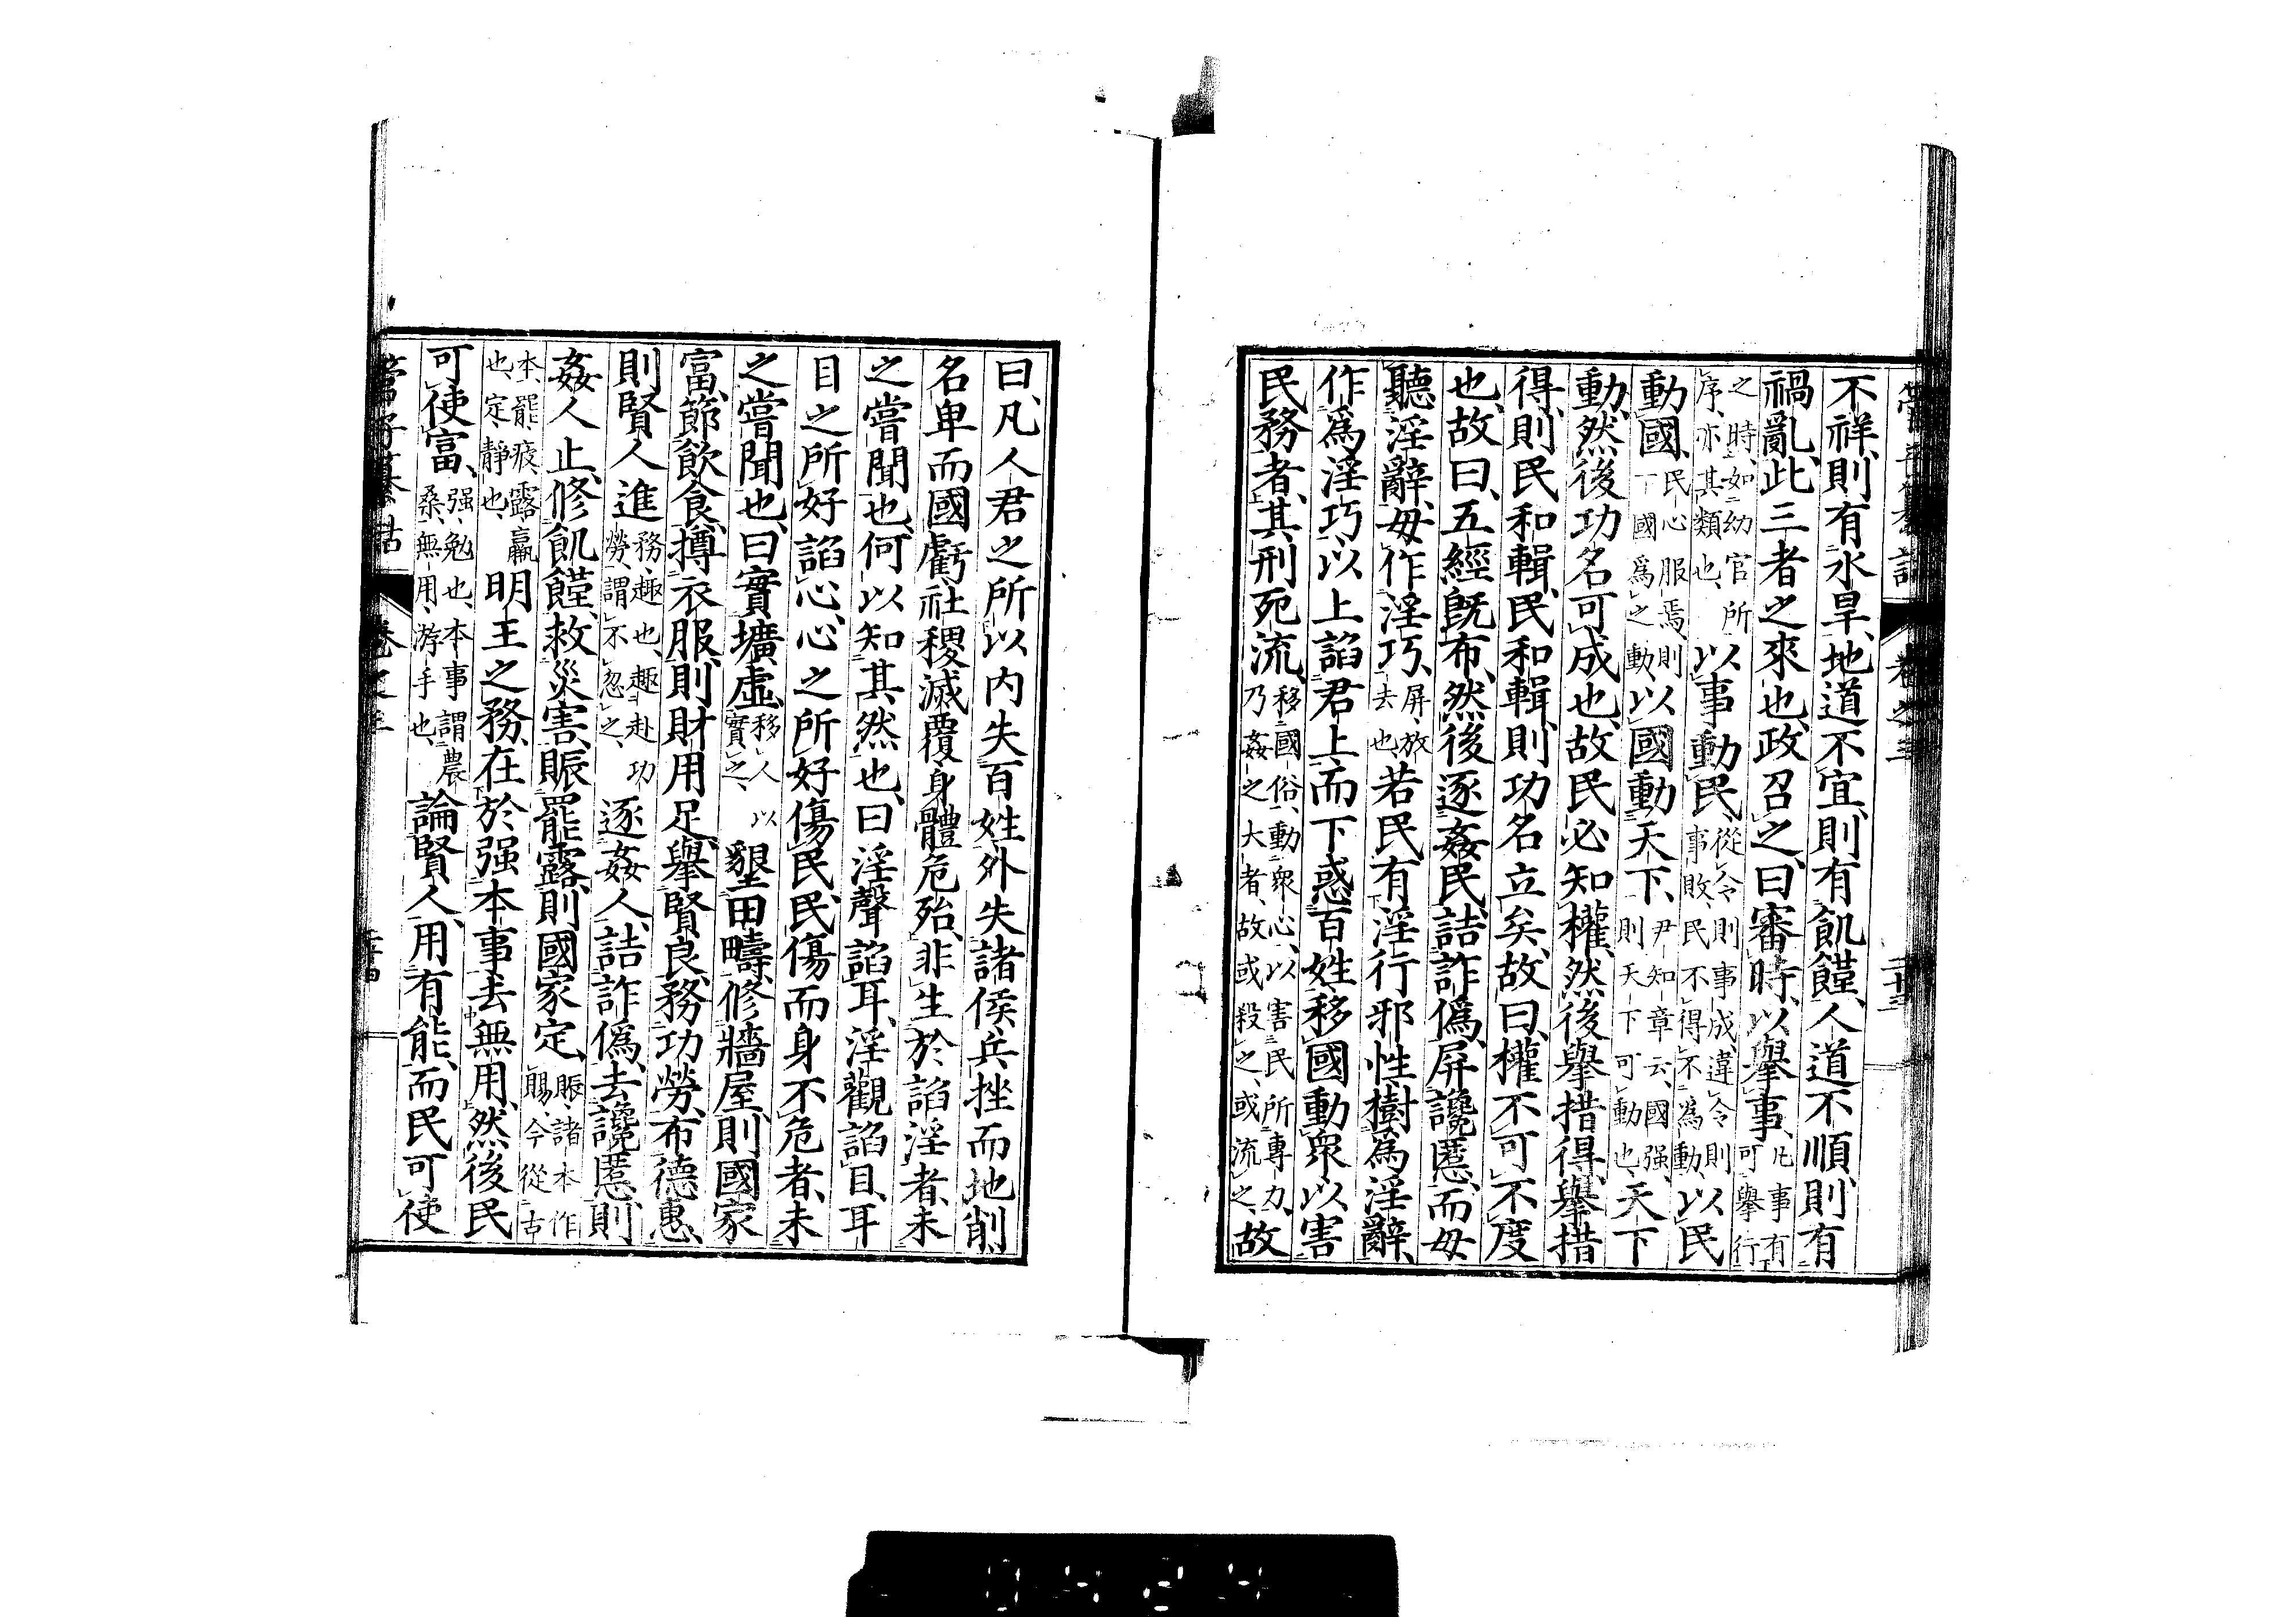 管子纂詁 卷之三 二十三
不祥、則有水旱、地道不宜、則有飢饉、人道不順、則有
禍亂、此三者之來也、政召之、曰審時、以舉事、凡事有可舉行
之時、如幼官所序、亦其類也、以事動民、從令則事成、違令則事敗、民不得不為動、以民
動國、民心服焉、則國為之動、以國動天下、尹知章云、國强、則天下可動也、天下
動、然後功名可成也、故民必知權、然後舉措得、舉措
得、則民和輯、民和輯、則功名立矣、故曰、權不可不度
也、故曰、五經既布、然後逐姦民、詰詐僞、屏讒慝、而毋
聽淫辭、毋作淫巧、屏、放去也、若民有淫行邪性、樹為淫辭、
作爲淫巧、以上諂君上、而下惑百姓、移國動衆、以害
民務者、其刑死流、移國俗、動衆心、以害民所專力、乃姦之大者、故或殺之、或流之、故
曰、凡人君之所以内失百姓、外失諸侯、兵挫而地削、
名卑而國虧、社稷滅覆、身體危殆、非生於諂淫者、未
之嘗聞也、何以知其然也、曰淫聲諂耳、淫觀諂目、耳
目之所好諂心、心之所好傷民、民傷而身不危者、未
之嘗聞也、曰實壙虛、移人以實之、墾田疇、修牆屋、則國家
富、節飲食、撙衣服、則財用足、舉賢良、務功勞、布德惠、
則賢人進、務、趣也、趣赴功勞、謂不忽之、逐姦人、詰詐僞、去讒慝、則
姦人止、修飢饉、救災害、賑罷露、則國家定、賑、諸本作賜、今從古
本、罷、疲、露、羸也、定、靜也、明王之務、在於强本事、去無用、然後民
可使富、强、勉也、本事謂農桑、無用、游手也、論賢人、用有能、而民可使
管子纂詁 卷之三 二十四